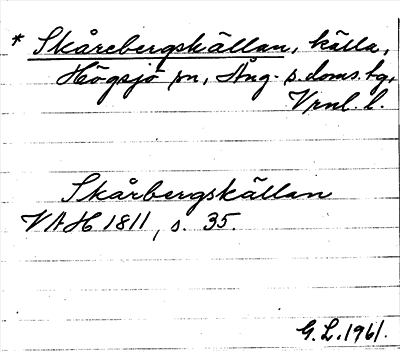 * Skårebergskällan, källa,
Högsjö sn, Ång. s. doms. tg,
Vrnl. l.
Skårbergskällan
VAH 1811, s. 35.
G.L. 1961.